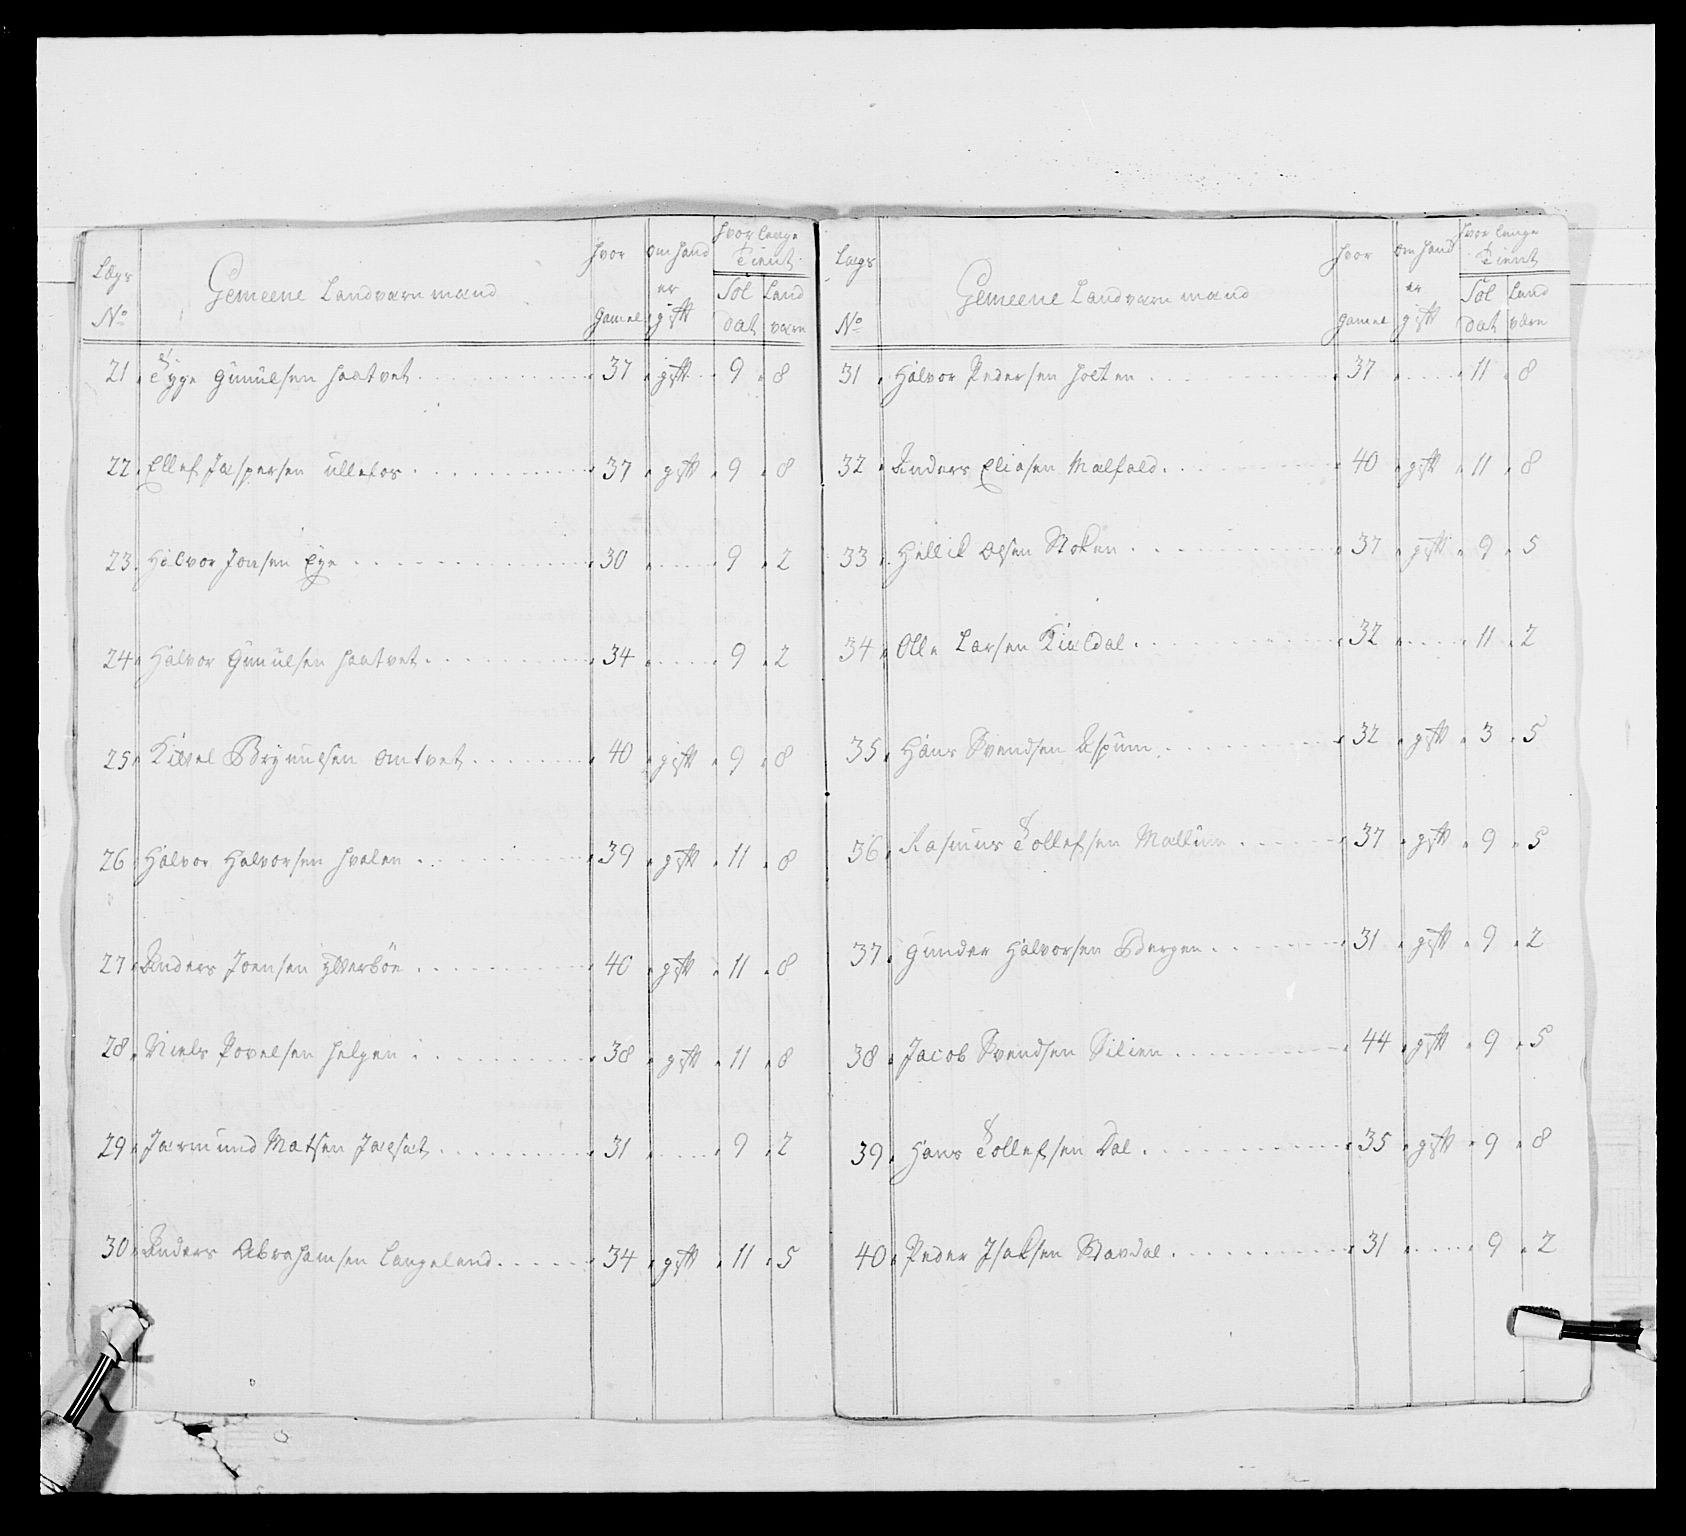 Lægs No Gemeene Landværn mænd hvor gamel om hand er gift hvor længe Tient Sol dat Land værn
21 Tyge Gunulsen Haatvet 37 gift 9 8
22 Ellef Jaspersen Ullefos 37 gift 9 8
23 Halvor Jonsen Eye 30 9 2
24 Halvor Gunulsen Haatvet 34 9 2
25 Kittel Brynulsen Omtvet 40 gift 9 8
26 Halvor Halvorsen Hvalen 39 gift 11 8
27 Anders Joensen Ytterböe 40 gift 11 8
28 Niels Povelsen Helgen 38 gift 11 8
29 Jærmund Matsen 31 9 2
30 Anders Abrahamsen Langeland 34 gift 11 5
Lægs No Gemeene Landværn mænd hvor gamel om hand er gift hvor længe Tient Sol dat Land værn
31 Halvor Pedersen Holten 37 11 8
32 Anders Eliasen Malfald 40 gift 11 8
33 Hellik Olsen Stoken 37 gift 9 5
34 Olle Larsen Kialdal 32 11 2
35 Hans Svendsen Aspum 32 gift 3 5
36 Rasmus Tollefsen 37 gift 9 5
37 Gunder Halvorsen Bergen 31 gift 9 2
38 Jacob Svendsen Silien 44 gift 9 5
39 Hans Tollefsen Dal 35 gift 9 8
40 Peder Isaksen Stavdal 31 9 2